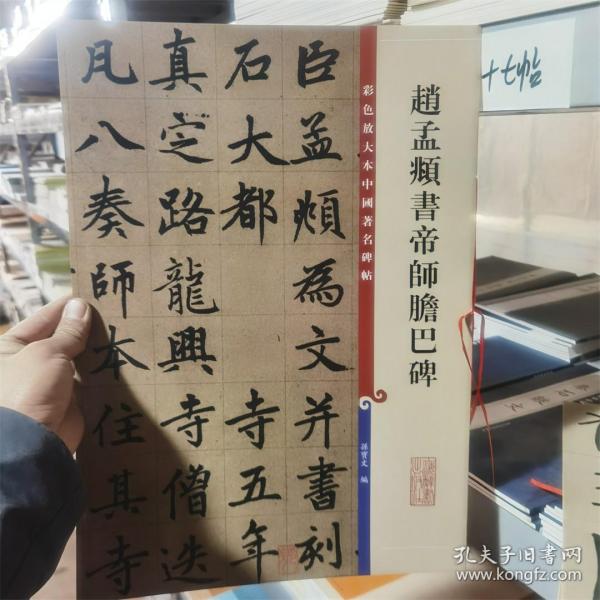 臣孟頫為文并書刻
石大都寺五年
真定路龍興寺僧迭
凡八奏師本住其寺
彩色放大本中國著名碑帖
趙孟頫書帝師膽巴碑
孫寶文 編
十七帖
孔夫子旧书网
www.kongfz.com